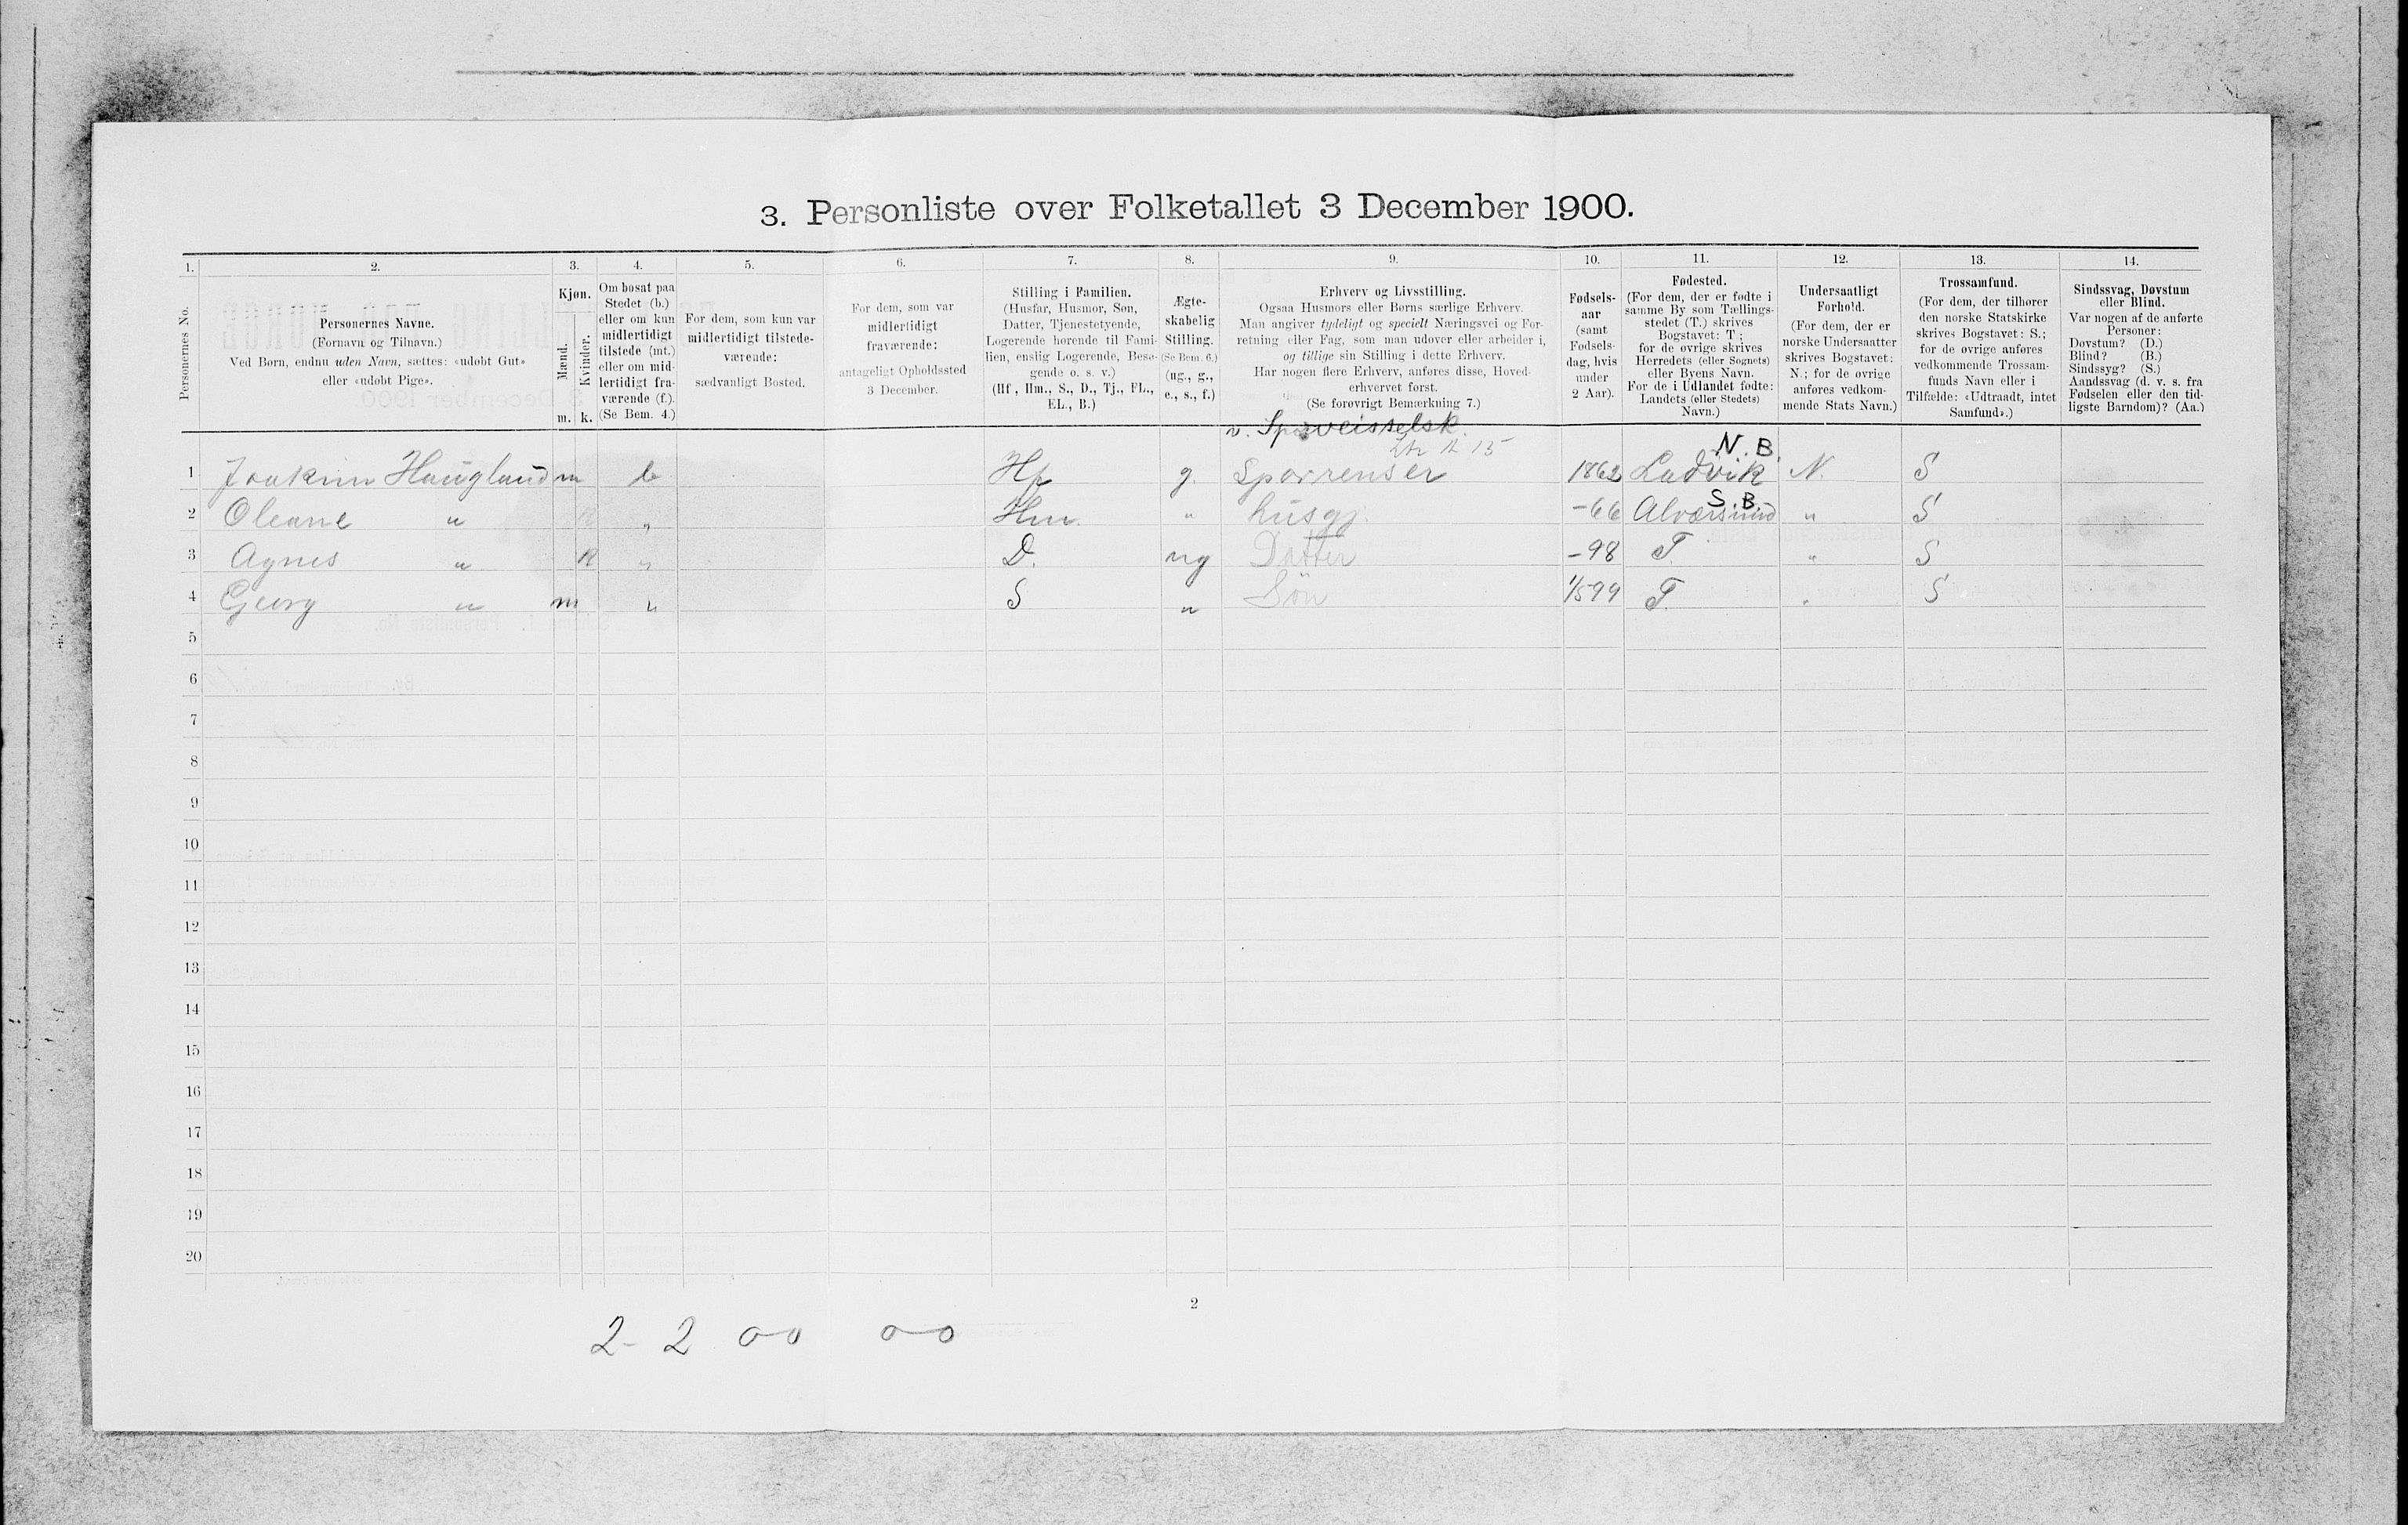 3. Personliste over Folketallet 3 December 1900.
1. 2. 3. 4. 5. 6. 7. 8. 9. 10. 11. 12. 13. 14.
Personernes No.
Personernes Navne.
(Fornavn og Tilnavn.)
Ved Børn, endnu uden Navn, sættes: «udøbt Gut»
eller «udøbt Pige».
Kjøn.
Mænd.
Kvinder.
m. k.
Om bosat paa
Stedet (b.)
eller om kun
midlertidigt
tilstede (mt.)
eller om mid-
lertidigt fra-
værende (f.).
(Se Bem. 4.)
For dem, som kun var
midlertidigt tilstede-
værende:
sædvanligt Bosted.
For dem, som var
midlertidigt
fraværende:
antageligt Opholdssted
3 December.
Stilling i Familien.
(Husfar, Husmor, Søn,
Datter, Tjenestetyende,
Logerende hørende til Fami-
lien, enslig Logerende, Besø-
gende o. s. v.)
(Hf., Hm., S., D., Tj., FL.,
EL., B.)
Ægte-
skabelig
Stilling.
(Se Bem. 6.)
(ug., g.,
e., s., f.)
Erhverv og Livsstilling.
Ogsaa Husmors eller Børns særlige Erhverv.
Man angiver tydeligt og specielt Næringsvei og For-
retning eller Fag, som man udøver eller arbeider i,
og tillige sin Stilling i dette Erhverv.
Har nogen flere Erhverv, anføres disse, Hoved-
erhvervet først.
(Se forøvrigt Bemærkning 7.)
Fødsels-
aar
(samt
Fødsels-
dag, hvis
under
2 Aar).
Fødested.
(For dem, der er fødte i
samme By som Tællings-
stedet (T.) skrives
Bogstavet: T;
for de øvrige skrives
Herredets (eller Sognets)
eller Byens Navn.
For de i Udlandet fødte:
Landets (eller Stedets)
Navn.)
Undersaatligt
Forhold.
(For dem, der er
norske Undersaatter
skrives Bogstavet:
N.; for de øvrige
anføres vedkom-
mende Stats Navn.)
Trossamfund.
(For dem, der tilhører
den norske Statskirke
skrives Bogstavet: S.;
for de øvrige anføres
vedkommende Trossam-
funds Navn eller i
Tilfælde: «Udtraadt, intet
Samfund».)
Sindssvag, Døvstum
eller Blind.
Var nogen af de anførte
Personer:
Døvstum? (D.)
Blind? (B.)
Sindssyg? (S.)
Aandssvag (d. v. s. fra
Fødselen eller den tid-
ligste Barndom)? (Aa.)
v. Sporveisselsk.
N. B.
1 Joakim Haugland m b Hf g. Sporrenser 1862 Ladvik N. S
S. B.
2 Oleane " k " Hm. " husgj. -66 Alversund " S
3 Agnes " k " D. ug Datter -98 T. " S
4 Georg " m " S " Søn 1/5 99 T. " S
5
6
7
8
9
10
11
12
13
14
15
16
17
18
19
20
2
2 - 2 00 00